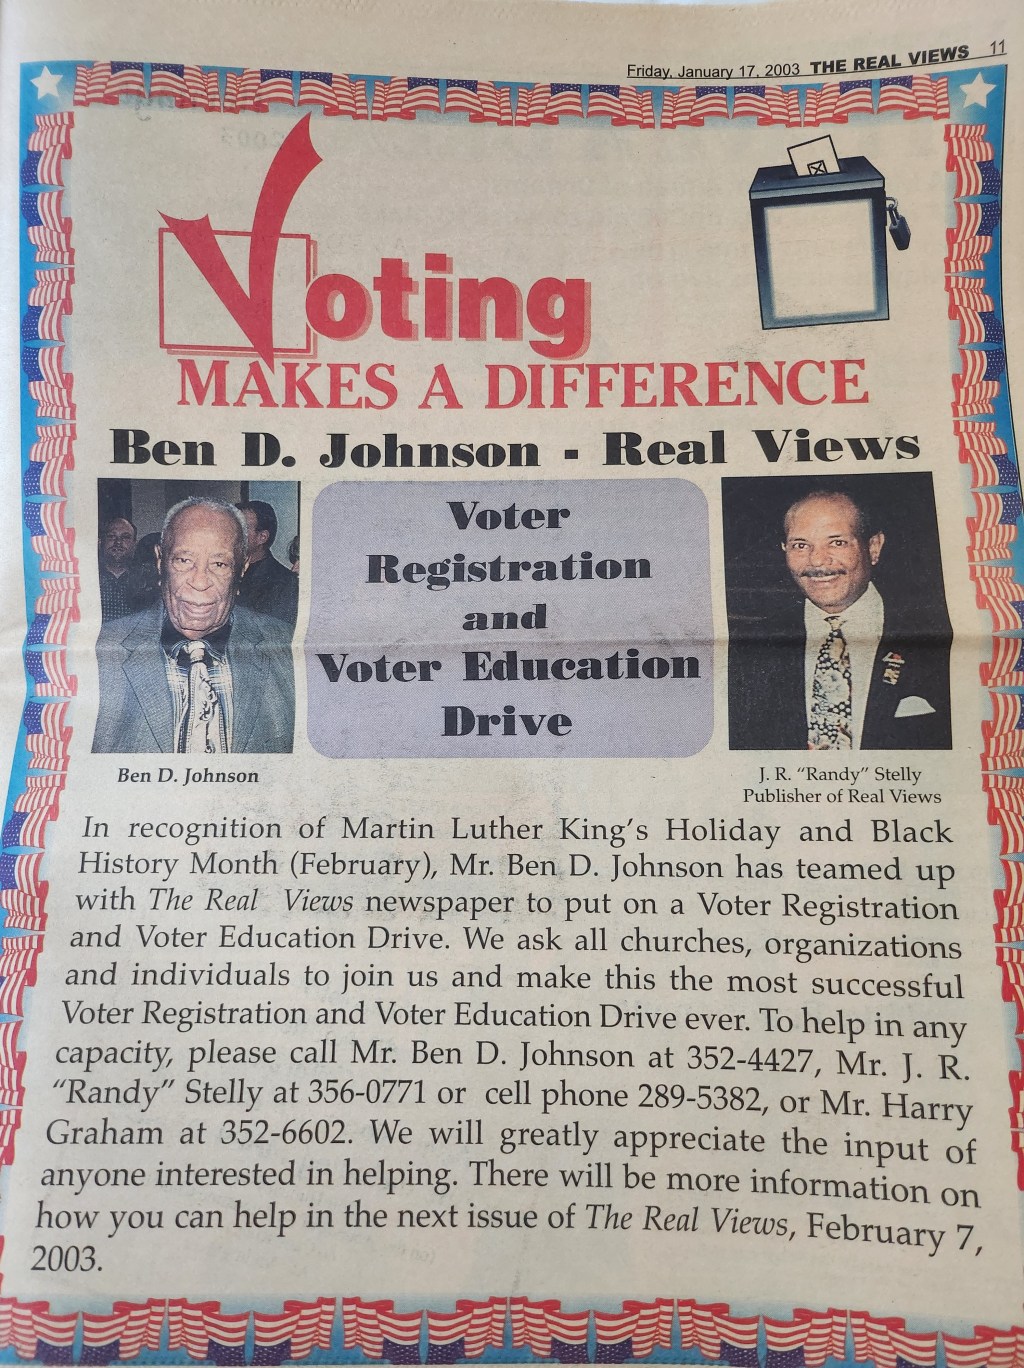 Friday, January 17, 2003 THE REAL VIEWS 11
Voting
MAKES A DIFFERENCE
Ben D. Johnson - Real Views
Voter
Registration
and
Voter Education
Drive
Ben D. Johnson
J. R. “Randy” Stelly
Publisher of Real Views
In recognition of Martin Luther King’s Holiday and Black
History Month (February), Mr. Ben D. Johnson has teamed up
with The Real Views newspaper to put on a Voter Registration
and Voter Education Drive. We ask all churches, organizations
and individuals to join us and make this the most successful
Voter Registration and Voter Education Drive ever. To help in any
capacity, please call Mr. Ben D. Johnson at 352-4427, Mr. J. R.
“Randy” Stelly at 356-0771 or cell phone 289-5382, or Mr. Harry
Graham at 352-6602. We will greatly appreciate the input of
anyone interested in helping. There will be more information on
how you can help in the next issue of The Real Views, February 7,
2003.